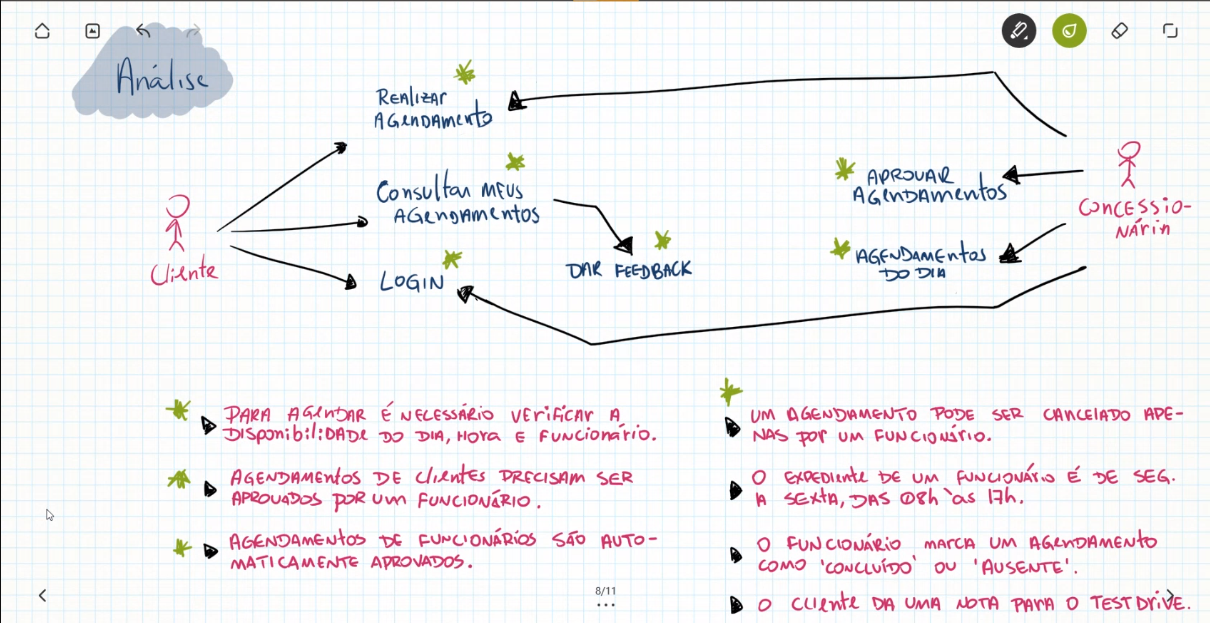 Análise
REALIZAR
AGENDAMENTO
CONSULTAR MEUS
AGENDAMENTOS
LOGIN
DAR FEEDBACK
Cliente
APROVAR
AGENDAMENTOS
AGENDAMENTOS
DO DIA
CONCESSIO-
NÁRIA
PARA AGENDAR É NECESSÁRIO VERIFICAR A
DISPONIBILIDADE DO DIA, HORA E FUNCIONÁRIO.
AGENDAMENTOS DE CLIENTES PRECISAM SER
APROVADOS POR UM FUNCIONÁRIO.
AGENDAMENTOS DE FUNCIONÁRIOS SÃO AUTO-
MATICAMENTE APROVADOS.
UM AGENDAMENTO PODE SER CANCELADO APE-
NAS POR UM FUNCIONÁRIO.
O EXPEDIENTE DE UM FUNCIONÁRIO É DE SEG.
A SEXTA, DAS 08h às 17h.
O FUNCIONÁRIO MARCA UM AGENDAMENTO
COMO 'CONCLUÍDO' OU 'AUSENTE'.
O CLIENTE DA UMA NOTA PARA O TEST DRIVE.
8/11